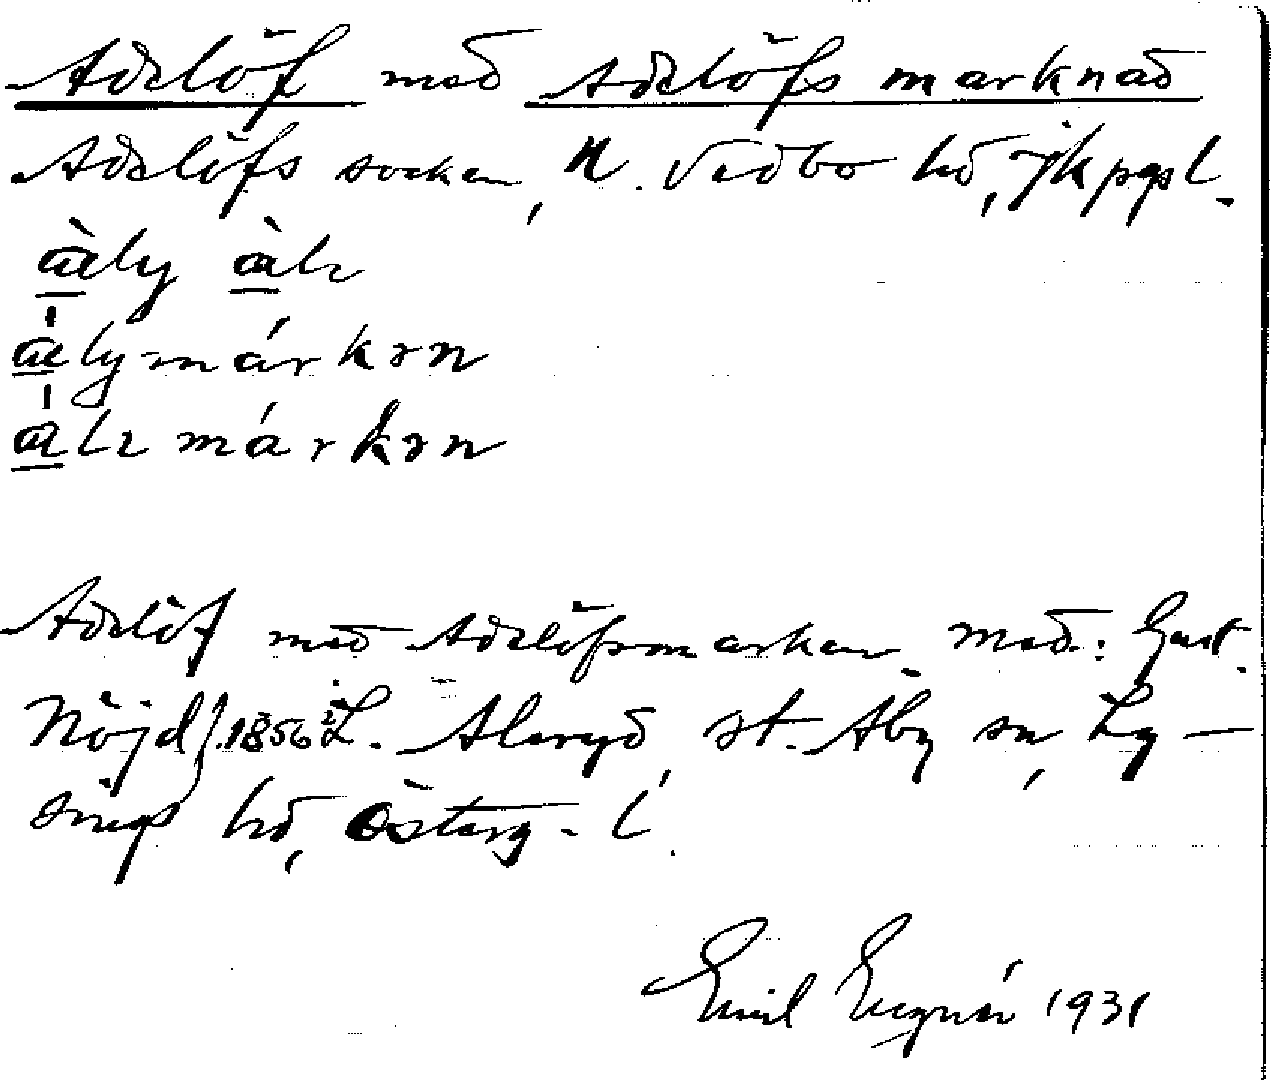 Adelöf med Adelöfs marknad
Adelöfs socken, N. Vedbo hd, Jkpgsl.
àly àlı
àlymárkən
àlımárkən
Adelöf med Adelöfsmarken. Med.: Gust.
Nöjd, f. 1856 i L. Aleryd, st. Åby sn, Ly-
sings hd, Österg-l.
Emil 1931